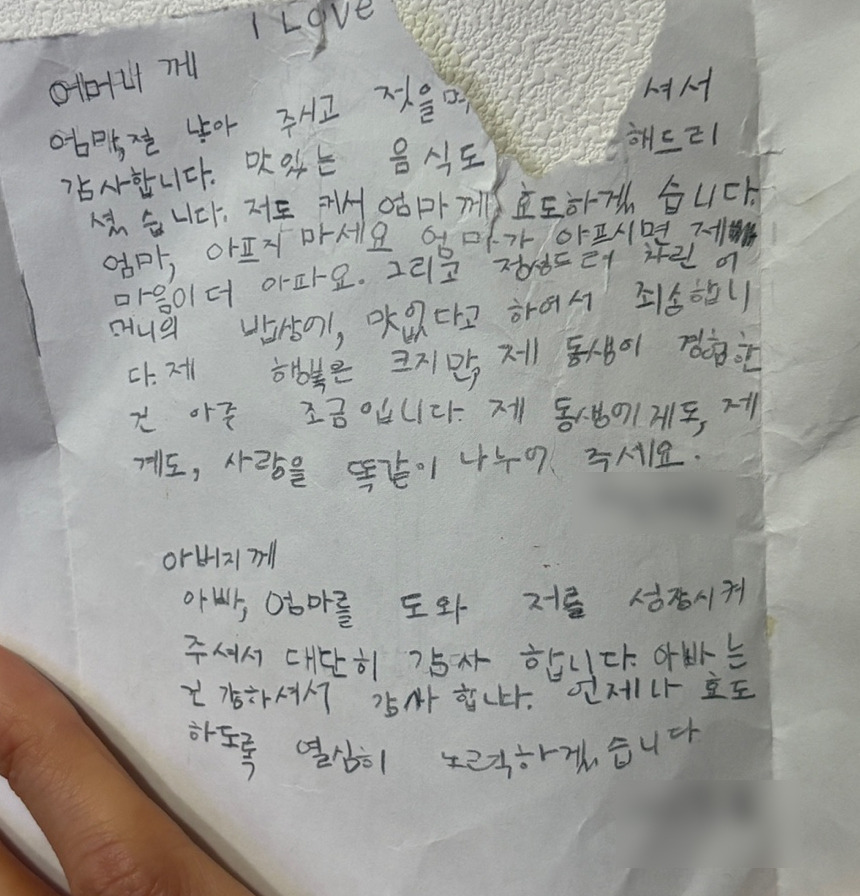 I LOVE
에머니 께
엄마,절 낳아 주시고 젓을 셔서
감사합니다. 맛있는 음식도 해드리
셨습니다. 저도 커서 엄마께 효도하겠습니다.
엄마, 아프지 마세요 엄마가 아프시면 제
마음이 더 아파요. 그리고 정성드려 차린 어
머니의 밥상에, 맛없다고 하여서 죄송합니
다. 제 행복은 크지만, 제 동생이 경험한
건 아주 조금입니다. 제 동생에게도, 제
계도, 사랑을 똑같이 나누어 주세요.
아버지께
아빠, 엄마를 도와 저를 성장시켜
주셔서 대단히 감사 합니다. 아빠는
건강하셔서 감사합니다. 언제나 효도
하도록 열심히 노력하겠습니다